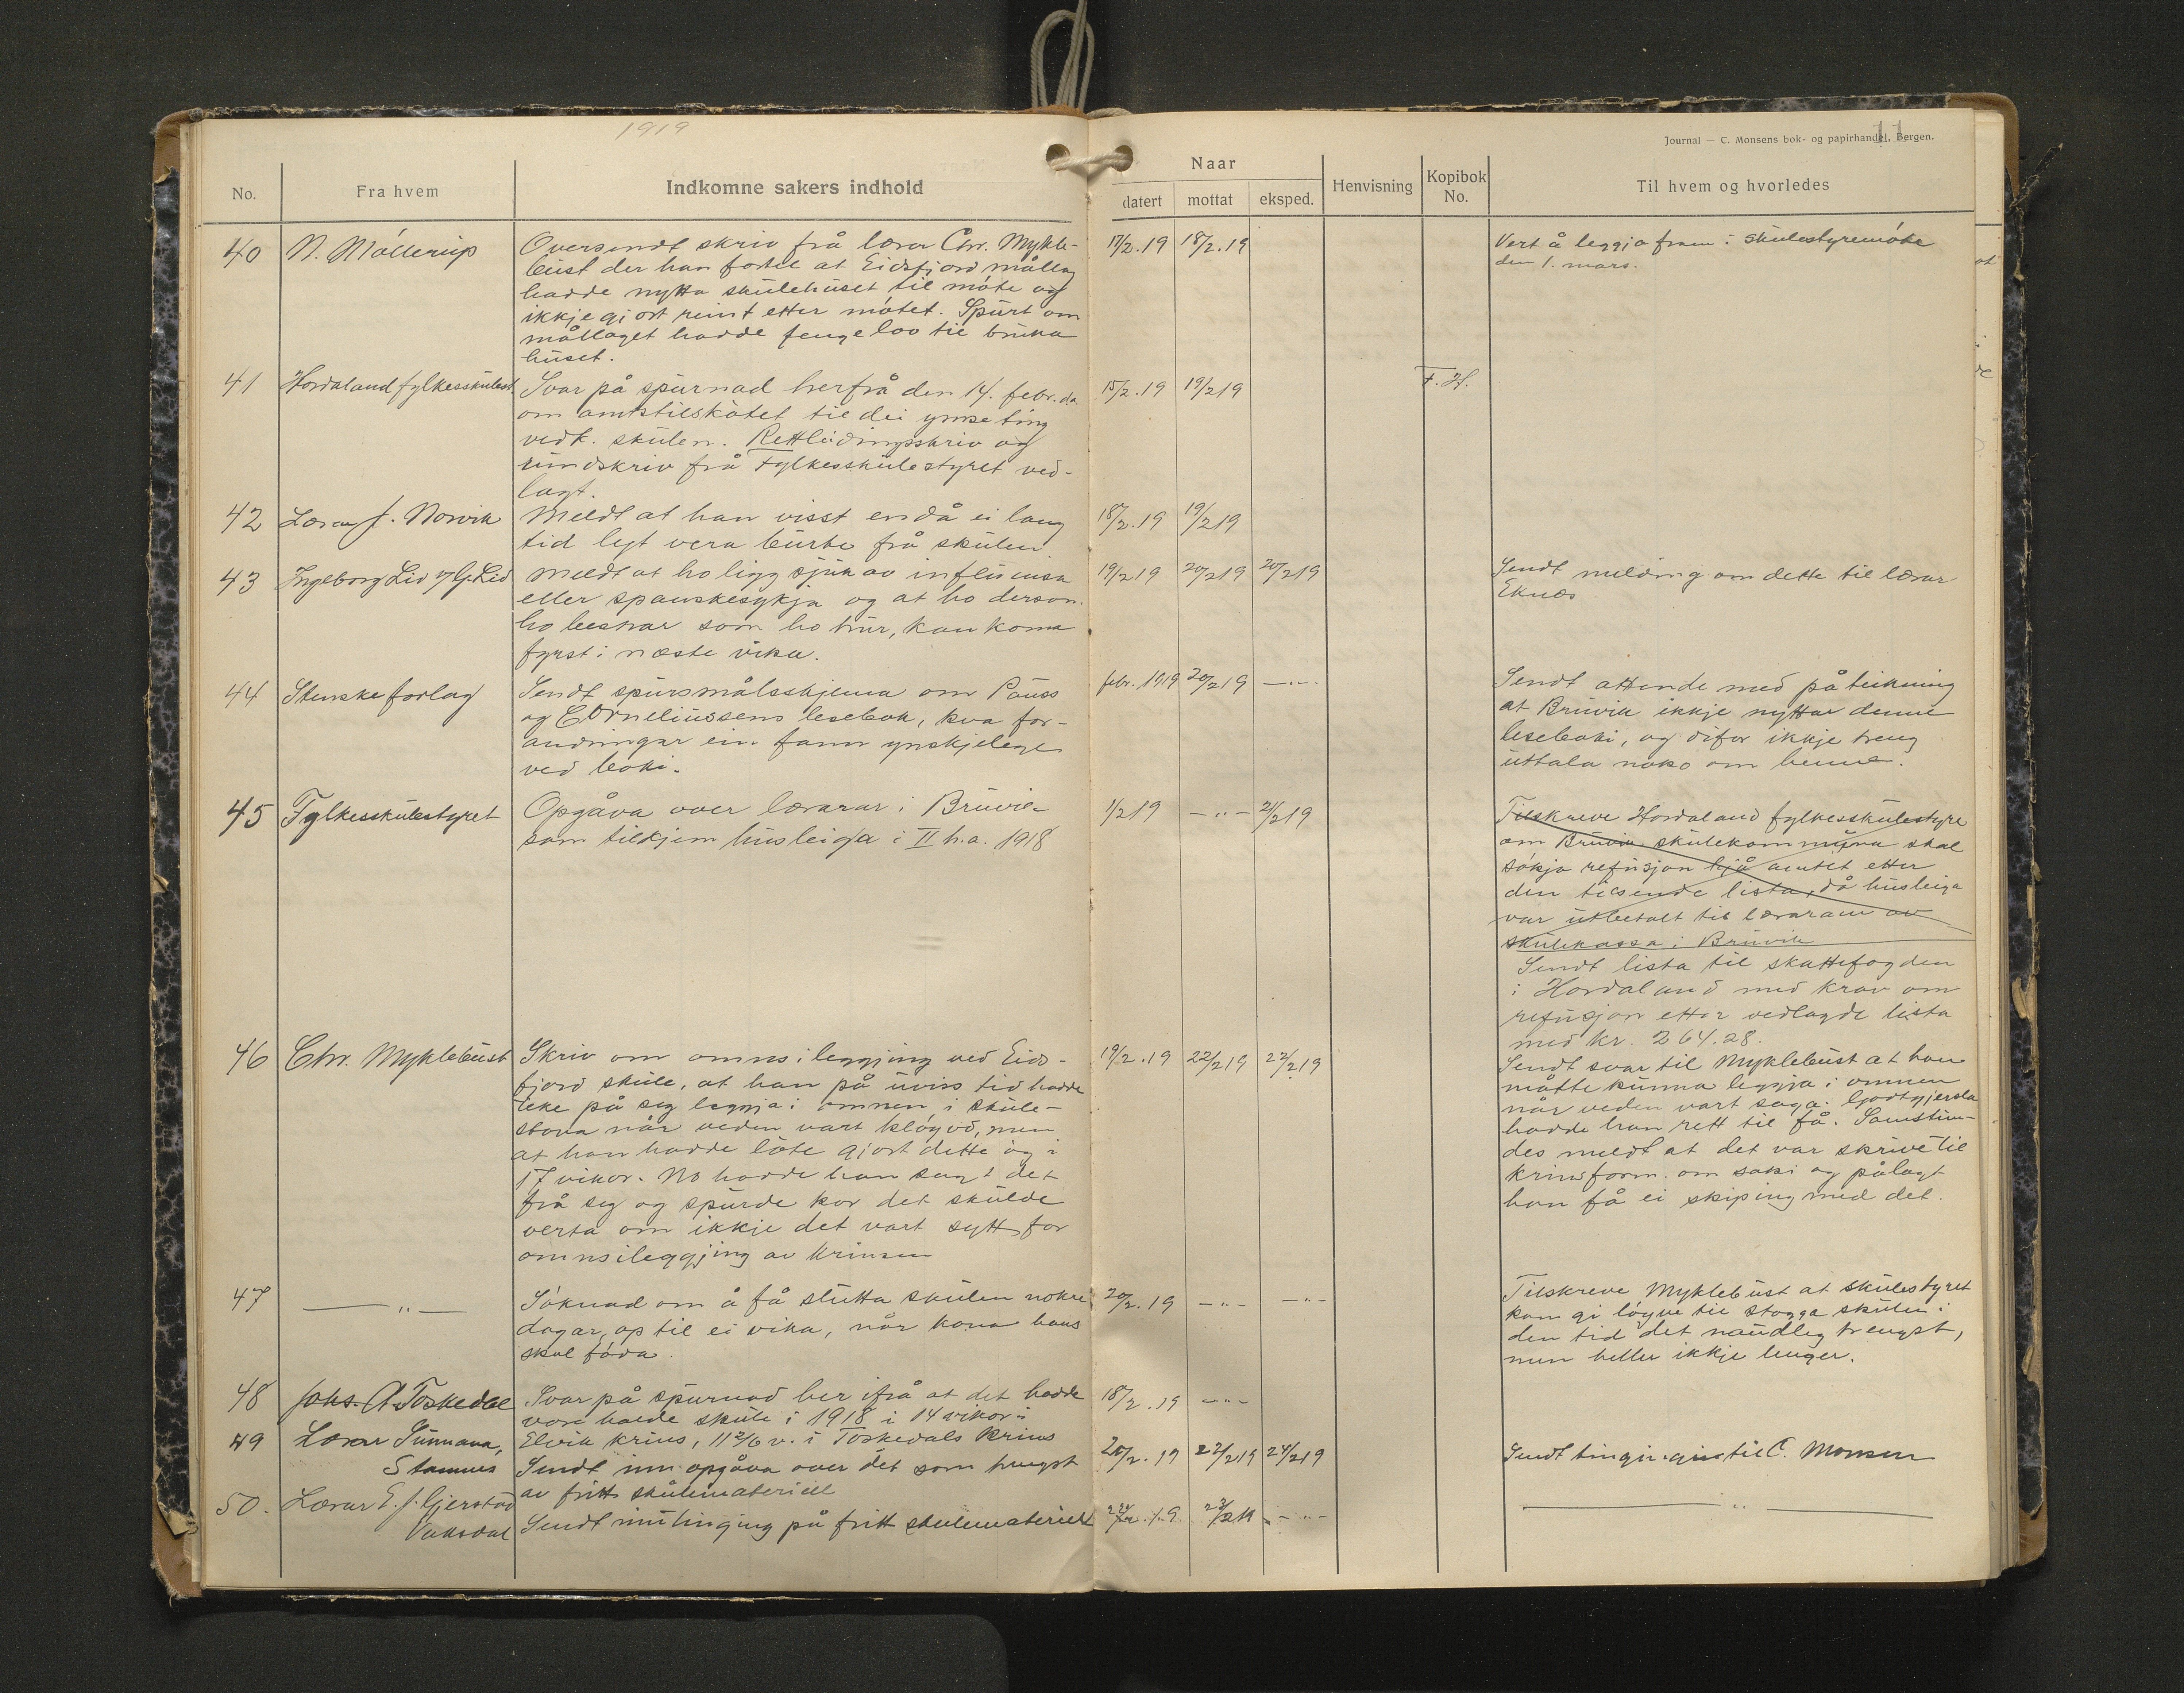 1919
11
Journal — C. Monsens bok- og papirhandel, Bergen.
No.
Fra hvem
Indkomne sakers indhold
Naar
datert
mottat
eksped.
Henvisning
Kopibok
No.
Til hvem og hvorledes
40 N. Möllerup
Oversendt skriv frå lærer Chr. Mykle-
bust der han fortel at Eidsfjord mållag
hadde nytta skulehuset til möte og
ikkje gjort reint etter mötet. Spurt om
mållaget hadde fenge lov til bruka
huset.
17/2.19 18/2.19
Vert å leggja fram i skulestyremöte
den 1. mars.
41 Hordaland fylkesskulest.
Svar på spurnad herfrå den 14. febr. d.a.
om amtstilskotet til dei ymse ting
vedk. skulen. Rettleidingsskriv og
rundskriv frå Fylkesskulestyret ved-
lagt.
15/2.19 19/2 19
F. H.
42 Lærar J. Norvik
Meldt at han visst endå ei lang
tid lyt vera burte frå skulen.
18/2.19 19/2 19
43 Ingeborg Lid v/ G. Lid
Meldt at ho ligg sjuk av influensa
eller spanskesykja og at ho derson
ho besnar som ho trur, kan koma
fyrst i næste vika.
19/2 19 20/2 19 20/2 19
Sendt melding om dette til lærar
Eknæs
44 Stenske forlag
Sendt spursmålsskjema om Pauss
og Corneliussens lesebok, kva for-
andringar ein fann ynskjelege
ved boki.
febr. 1919 20/2 19 —"—
Sendt attende med påteikning
at Bruvik ikkje nyttar denne
leseboki, og difor ikkje treng
uttala noko om henne.
45 Fylkesskulestyret
Opgåva over lærarar i Bruvik
som tilkjem husleiga i II h.a. 1918
1/2 19 —"— 21/2 19
Tilskreve Hordaland fylkesskulestyre
om Bruvik skulekommuna skal
sökja refusjon hjå amtet etter
den tilsende lista, då husleiga
var utbetalt til lærarane av
skulekassa i Bruvik
Sendt lista til skattefogden
i Hordaland med krav om
refusjon etter vedlagde lista
med kr. 264.28.
46 Chr. Myklebust
Skriv om omnsileggjing ved Eids-
fjord skule, at han på uviss tid hadde
teke på seg leggja i omnen i skule-
stova når veden vart klogvd, men
at han hadde lote gjort dette òg i
17 vikor. No hadde han sagt det
frå seg og spurde kor det skulde
verta om ikkje det vart sytt for
omnsileggjing av krinsen
19/2.19 22/2 19 22/2 19
Sendt svar til Myklebust at han
måtte kunna leggja i omnen
når veden vart saga. Godtgjersla
hadde han rett til få. Samstun-
des meldt at det var skrive til
krinsform. om saki og pålagt
han få ei skiping med det.
47 —"—
Söknad om å få slutta skulen nokre
dagar, op til ei vika, når kona hans
skal föda.
20/2.19 —"— —"—
Tilskreve Myklebust at skulestyret
kan gi löyve til stogga skulen i
den tid det naudleg trengst,
men heller ikkje lenger.
48 Johs. A. Toskedal
Svar på spurnad her ifrå at det hadde
vore halde skule i 1918 i 14 vikor i
Elvik krins, 11 2/6 v. i Toskedals krins
18/2.19 —"—
49 Lærar Sunnana,
Stamnes
Sendt inn opgåva over det som trengst
av fritt skulemateriell
20/2.19 22/2 19 24/2 19
Sendt til C. Monsen
50. Lærar E. J. Gjerstad
Vaksdal
Sendt inn tinging på fritt skulemateriell
22/2.19 23/2 19 —"—
—"—